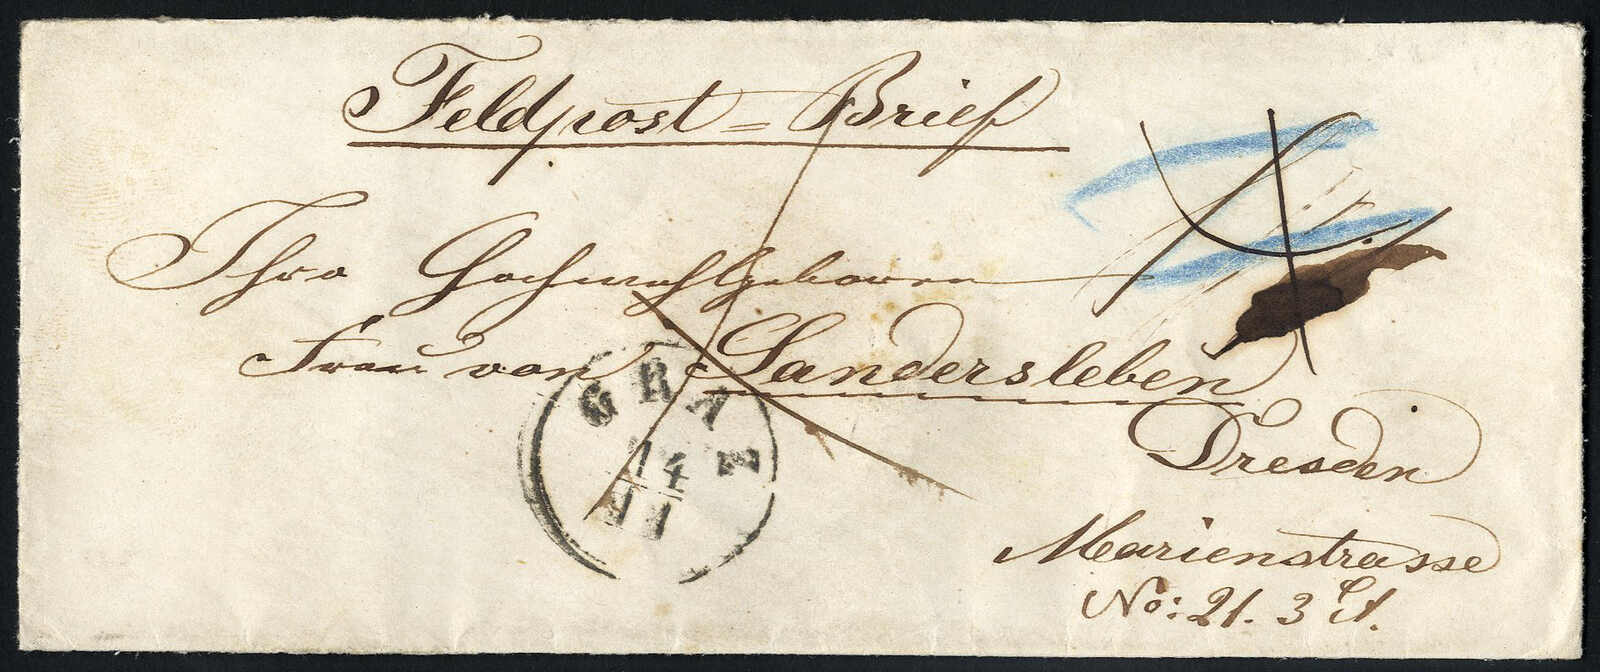 Feldpost=Brief
Ihro Hochwohlgeboren
Frau von Sandersleben
GRAZ
14
11
Dresden
Marienstrasse
No: 21. 3 St.